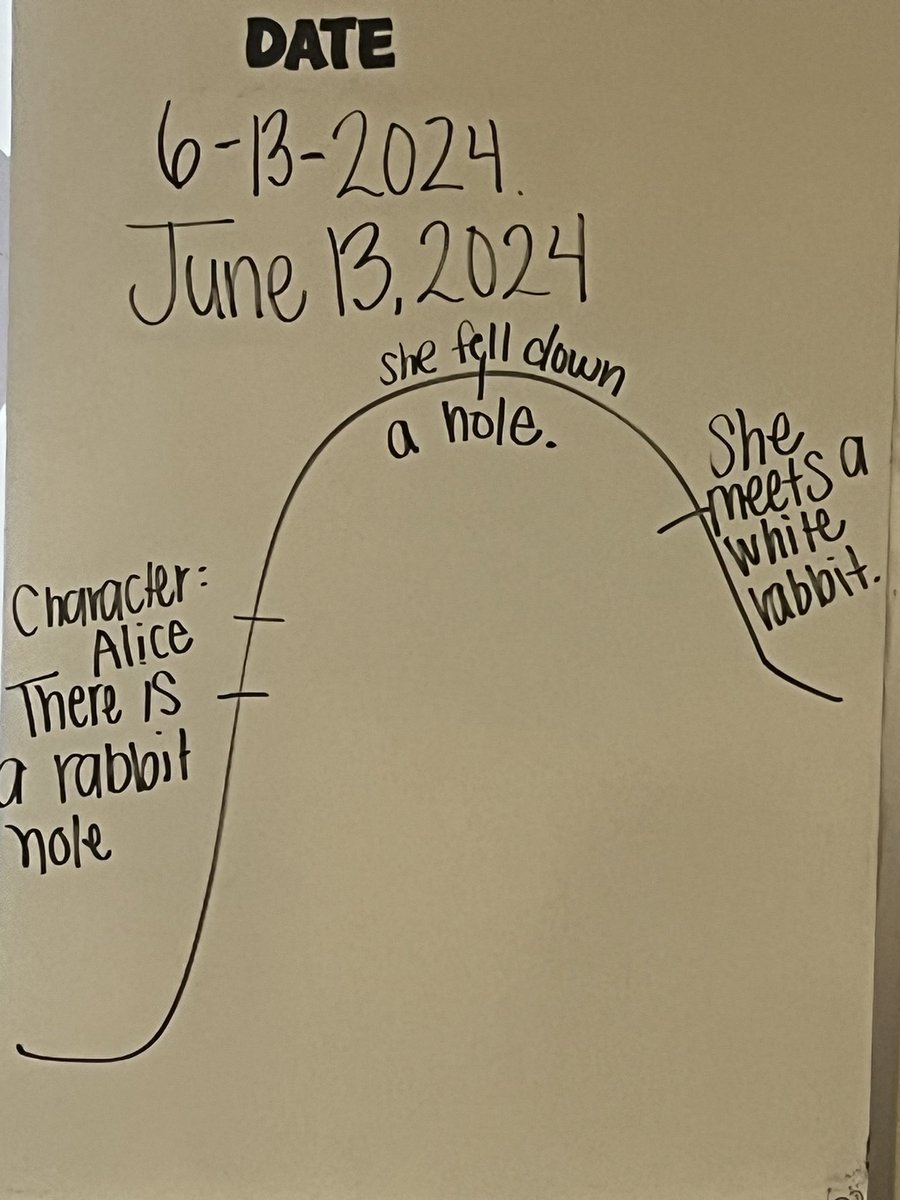 DATE
6-13-2024.
June 13, 2024
she fell down
a hole.
She
meets a
white
rabbit.
Character:
Alice
There is
a rabbit
hole